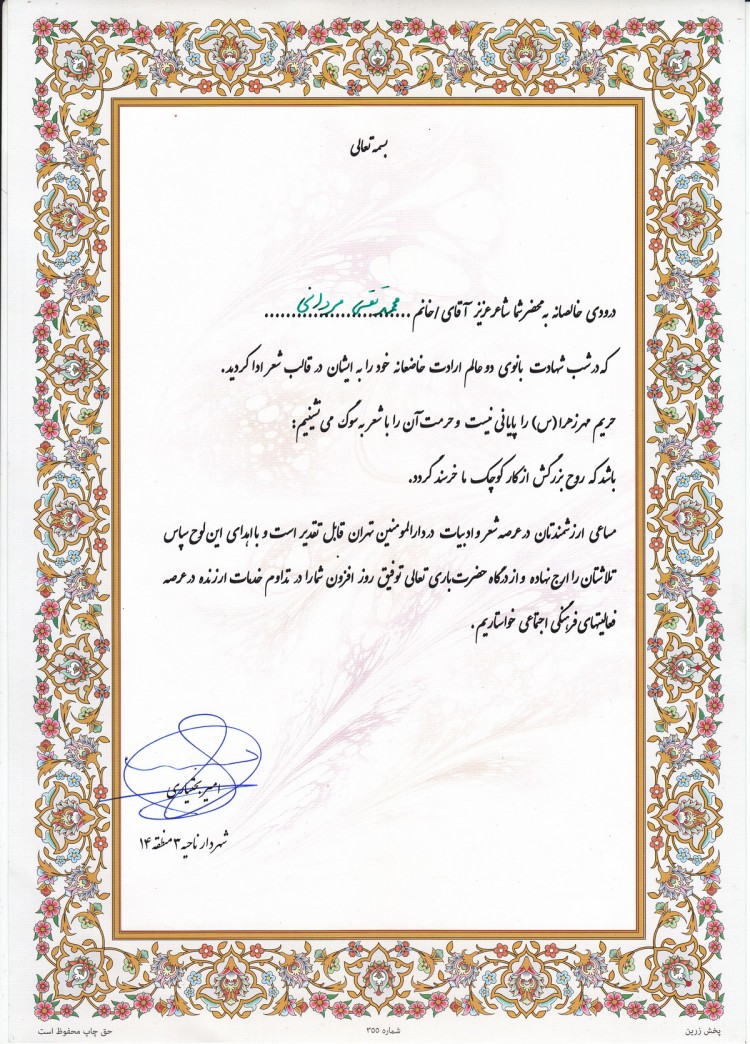 بسمه تعالی
درودی خالصانه به محضر شما شاعر عزیز آقای/خانم ..محمدتقی مردانی..
که در شب شهادت بانوی دو عالم ارادت خاضعانه خود را به ایشان در قالب شعر ادا کردید.
حریم مهر زهرا (س) را پایانی نیست و حرمت آن را با شعر به سوگ می نشینیم:
باشد که روح بزرگش از کار کوچک ما خرسند گردد.
مساعی ارزشمندتان در عرصه شعر و ادبیات در دارالمومنین تهران قابل تقدیر است و با اهدای این لوح سپاس
تلاشتان را ارج نهاده و از درگاه حضرت باری تعالی توفیق روز افزون شما را در تداوم خدمات ارزنده در عرصه
فعالیتهای فرهنگی اجتماعی خواستاریم.
امیر بختیاری
شهردار ناحیه ۳ منطقه ۱۴
پخش زرین
شماره ۳۵۵
حق چاپ محفوظ است